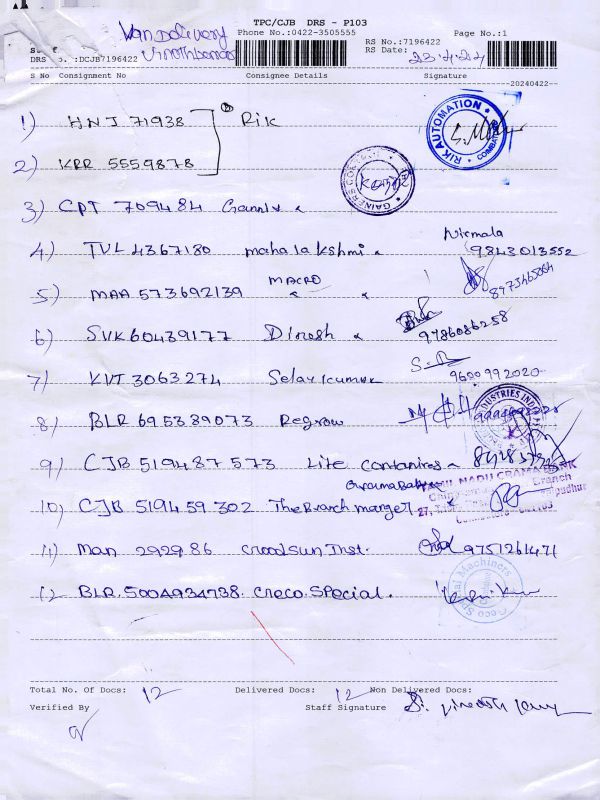 TPC/CJB DRS - P103
Van Delivery
Phone No.:0422-3505555 Page No.:1
RS No.:7196422
RS Date: 23.4.24
DRS :DCJB7196422
S No Consignment No Consignee Details Signature
20240422
1) HNJ 71938 Rik
RIK AUTOMATION
2) KRR 5559878
3) CPT 709484
4) TVL 4367180 mahalakshmi Nirmala
9843013552
MACRO
5) MAA 573692139
6) SVK60439177 Dinesh 9786086258
7) KVT 3063274 Selvakumar 9600992020
8) BLR 695389073 Regrow
9) CJB 519487573 Lite containres
TAMIL NADU GRAMA BANK
Branch
10) CJB 519459302 The Branch manger
11) Man 292986 Inst. 9751261471
12 BLR.5004934738. creco.special.
Creco Special Machiners
Total No. Of Docs: 12 Delivered Docs: 12 Non Delivered Docs:
Verified By Staff Signature